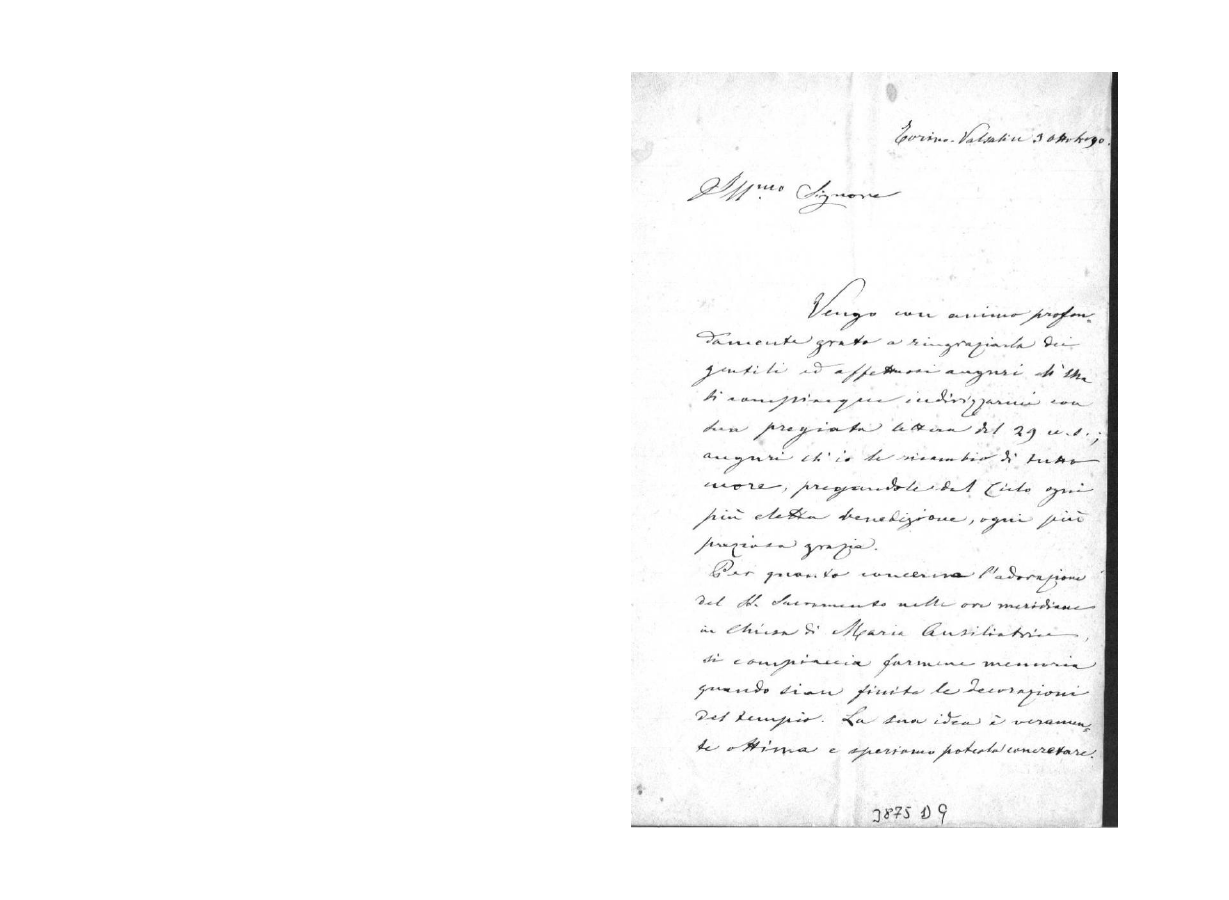 Torino-Valsalice 3 Ottobre 90.
Ill.mo Signore
Vengo con animo profon-
damente grato a ringraziarla dei
gentili ed affettuosi auguri ch'Ella
si compiacque indirizzarmi con
sua pregiata lettera del 29 u.s.;
auguri ch'io le ricambio di tutto
cuore, pregandole dal Cielo ogni
più eletta benedizione, ogni più
preziosa grazia.
Per quanto concerne l'adorazione
del SS. Sacramento nelle ore meridiane
in Chiesa di Maria Ausiliatrice,
si compiaccia farmene memoria
quando sian finite le decorazioni
del tempio. La sua idea è veramen-
te ottima e speriamo poterla concretare.
3875 D9